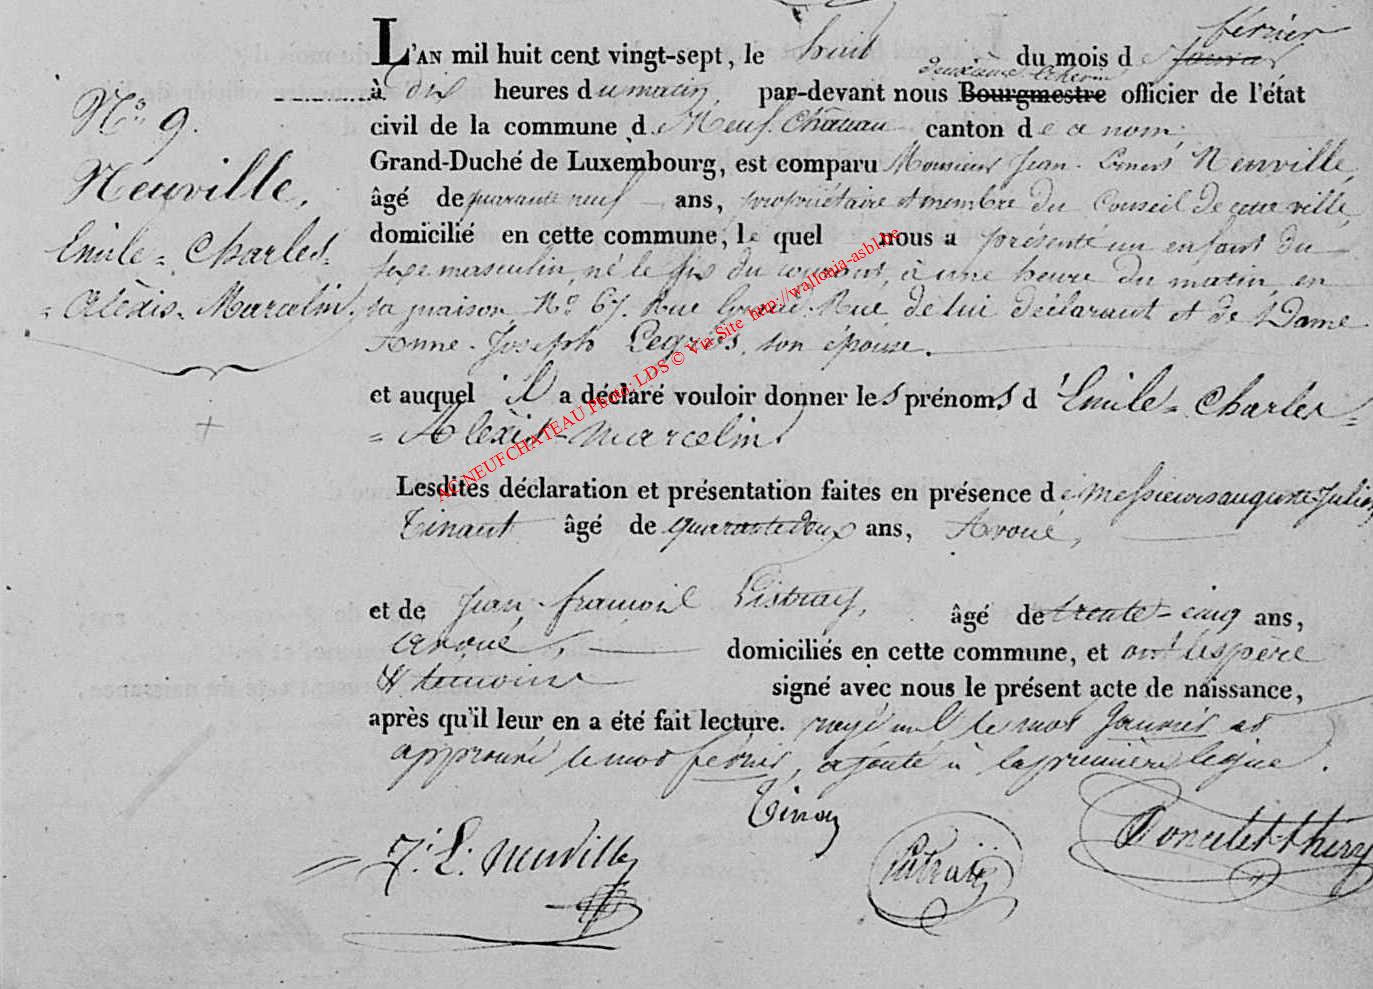 N.o 9.
Neuville,
Emile = Charles =
= Alèxis = Marcelin.
février
L'AN mil huit cent vingt-sept, le huit du mois de Janvier
deuxième Echevin
à dix heures du matin, par-devant nous Bourgmestre officier de l'état
civil de la commune de Neuf-Château canton de ce nom
Grand-Duché de Luxembourg, est comparu Monsieur Jean Neuville,
âgé de quarante neuf ans, propriétaire et membre du Conseil de cette ville,
domicilié en cette commune, le quel nous a présenté un enfant du
sexe masculin, né le six du courant, à une heure du matin, en
sa maison N.o 67. Rue de lui déclarant et de Dame
Anne-Joseph Legros, son épouse.
et auquel il a déclaré vouloir donner les prénoms d'Emile = Charles =
= Alèxis = Marcelin.
Lesdites déclaration et présentation faites en présence de Messieurs auguste-Julien
Tinant âgé de quarante deux ans, Avoué,
et de Jean-françois âgé de trente-cinq ans,
avoué, domiciliés en cette commune, et ont les père
et témoins signé avec nous le présent acte de naissance,
après qu'il leur en a été fait lecture. rayé nul le mot Janvier et
approuvé le mot février, ajouté à la première ligne.
Tinant
J. L. Neuville
Poncelet-thiry
AC NEUFCHATEAU Photo: LDS © Via Site http://wallonia-asbl.be